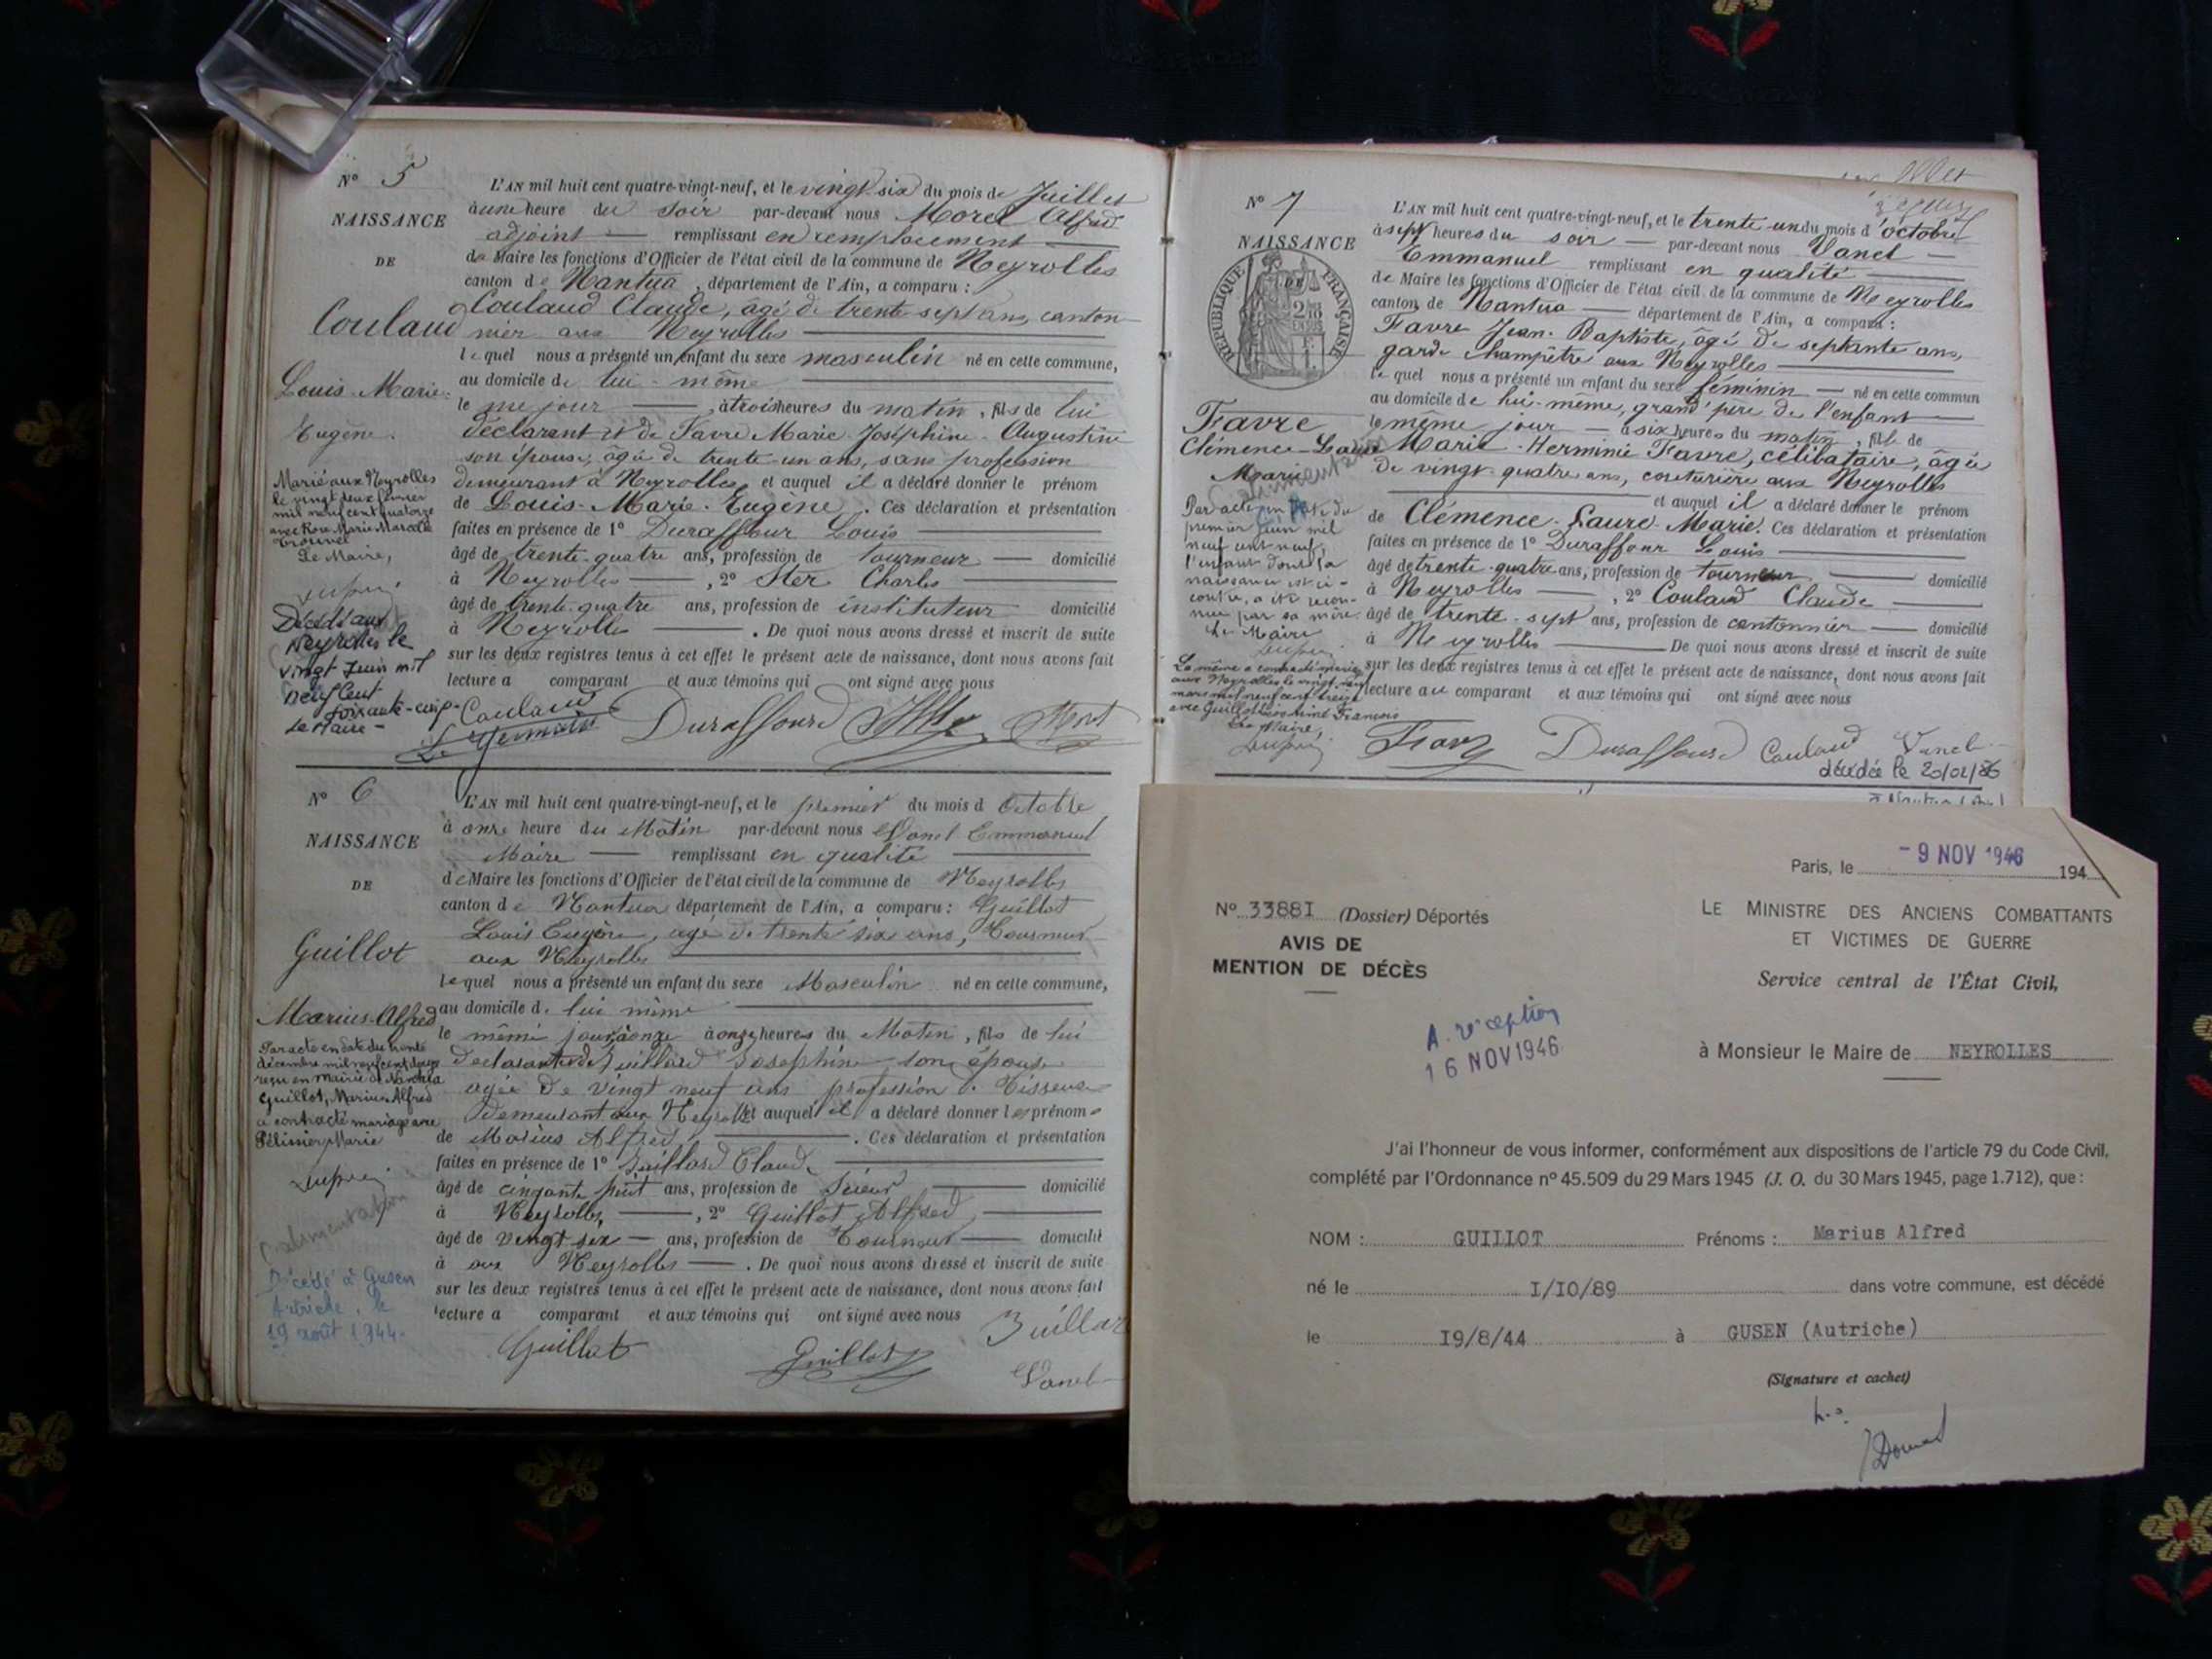 Nº 5
NAISSANCE
DE
Coulaud
Louis Marie
Eugène.
Marié aux Neyrolles
le vingt deux février
mil neuf cent quatorze
avec Rose Marie Marcelle
Le Maire,
Décédé aux
Neyrolles le
vingt Juin mil
neuf cent
soixante-cinq.
Le Maire -
L'AN mil huit cent quatre-vingt-neuf, et le vingt six du mois de Juillet
à une heure du soir par-devant nous Morel Alfred
adjoint remplissant en remplacement
de Maire les fonctions d'Officier de l'état civil de la commune de Neyrolles
canton de Nantua, département de l'Ain, a comparu :
Coulaud Claude, âgé de trente-sept ans, canton-
nier aux Neyrolles
lequel nous a présenté un enfant du sexe masculin né en cette commune,
au domicile de lui-même
le me jour, à trois heures du matin, fils de lui
déclarant et de Favre Marie Joséphine Augustine
son épouse, âgée de trente-un ans, sans profession
demeurant à Neyrolles et auquel il a déclaré donner le prénom
de Louis-Marie-Eugène. Ces déclaration et présentation
faites en présence de 1º Duraffour Louis
âgé de trente-quatre ans, profession de tourneur domicilié
à Neyrolles, 2º Ster Charles
âgé de trente-quatre ans, profession de instituteur domicilié
à Neyrolles. De quoi nous avons dressé et inscrit de suite
sur les deux registres tenus à cet effet le présent acte de naissance, dont nous avons fait
lecture a comparant et aux témoins qui ont signé avec nous
Coulaud Duraffourd
Nº 6
NAISSANCE
DE
Guillot
Marius-Alfred
Par acte en date du trente
décembre mil neuf cent douze
reçu en Mairie de Nantua
Guillot, Marius Alfred
a contracté mariage avec
Pélissier Marie
Décédé à Gusen
Autriche, le
19 août 1944.
L'AN mil huit cent quatre-vingt-neuf, et le premier du mois d Octobre
à onze heure du Matin par-devant nous Vanel Emmanuel
Maire remplissant en qualité
de Maire les fonctions d'Officier de l'état civil de la commune de Neyrolles
canton de Nantua département de l'Ain, a comparu : Guillot
Louis Eugène, âgé de trente six ans, Tourneur
aux Neyrolles
lequel nous a présenté un enfant du sexe Masculin né en cette commune,
au domicile de lui même
le même jour, à onze heures du Matin, fils de lui
déclarant et de Joséphine son épouse
agée de vingt neuf ans profession de Tisseuse
demeurant aux Neyrolles et auquel il a déclaré donner les prénoms
de Marius Alfred. Ces déclaration et présentation
faites en présence de 1º Claude
âgé de cinqante huit ans, profession de Scieur domicilié
à Neyrolles, 2º Guillot Alfred
âgé de vingt six ans, profession de Tourneur domicilié
à aux Neyrolles. De quoi nous avons dressé et inscrit de suite
sur les deux registres tenus à cet effet le présent acte de naissance, dont nous avons fait
lecture a comparant et aux témoins qui ont signé avec nous
Guillot Guillot
Vanel
Nº 7
NAISSANCE
DE
RÉPUBLIQUE FRANÇAISE
Favre
Clémence-Laure
Marie
Par acte en date du
premier juin mil
neuf cent neuf,
l'enfant dont la
naissance est ci-
contre, a été recon-
nue par sa mère.
Le Maire
La même a contracté mariage
aux Neyrolles le vingt neuf
mars mil neuf cent treize
avec Guillot François
Le Maire,
L'AN mil huit cent quatre-vingt-neuf, et le trente-un du mois d'octobre
à sept heures du soir par-devant nous Vanel
Emmanuel remplissant en qualité
de Maire les fonctions d'Officier de l'état civil de la commune de Neyrolles
canton de Nantua département de l'Ain, a comparu :
Favre Jean-Baptiste, âgé de septante ans,
garde champêtre aux Neyrolles
lequel nous a présenté un enfant du sexe féminin né en cette commun
au domicile de lui-même, grand'père de l'enfant
le même jour à six heures du matin, fille de
Marie-Herminie Favre, célibataire, âgée
de vingt-quatre ans, couturière aux Neyrolles
et auquel il a déclaré donner le prénom
de Clémence-Laure-Marie. Ces déclaration et présentation
faites en présence de 1º Duraffour Louis
âgé de trente-quatre ans, profession de tourneur domicilié
à Neyrolles, 2º Coulaud Claude
âgé de trente-sept ans, profession de cantonnier domicilié
à Neyrolles De quoi nous avons dressé et inscrit de suite
sur les deux registres tenus à cet effet le présent acte de naissance, dont nous avons fait
lecture au comparant et aux témoins qui ont signé avec nous
Duraffourd Coulaud Vanel
décédée le 20/01/86
Paris, le - 9 NOV 1946 194
Nº 33881 (Dossier) Déportés
AVIS DE
MENTION DE DÉCÈS
LE MINISTRE DES ANCIENS COMBATTANTS
ET VICTIMES DE GUERRE
Service central de l'État Civil,
A. réception
16 NOV 1946
à Monsieur le Maire de NEYROLLES
J'ai l'honneur de vous informer, conformément aux dispositions de l'article 79 du Code Civil,
complété par l'Ordonnance nº 45.509 du 29 Mars 1945 (J. O. du 30 Mars 1945, page 1.712), que :
NOM : GUILLOT Prénoms : Marius Alfred
né le I/IO/89 dans votre commune, est décédé
le I9/8/44 à GUSEN (Autriche)
(Signature et cachet)